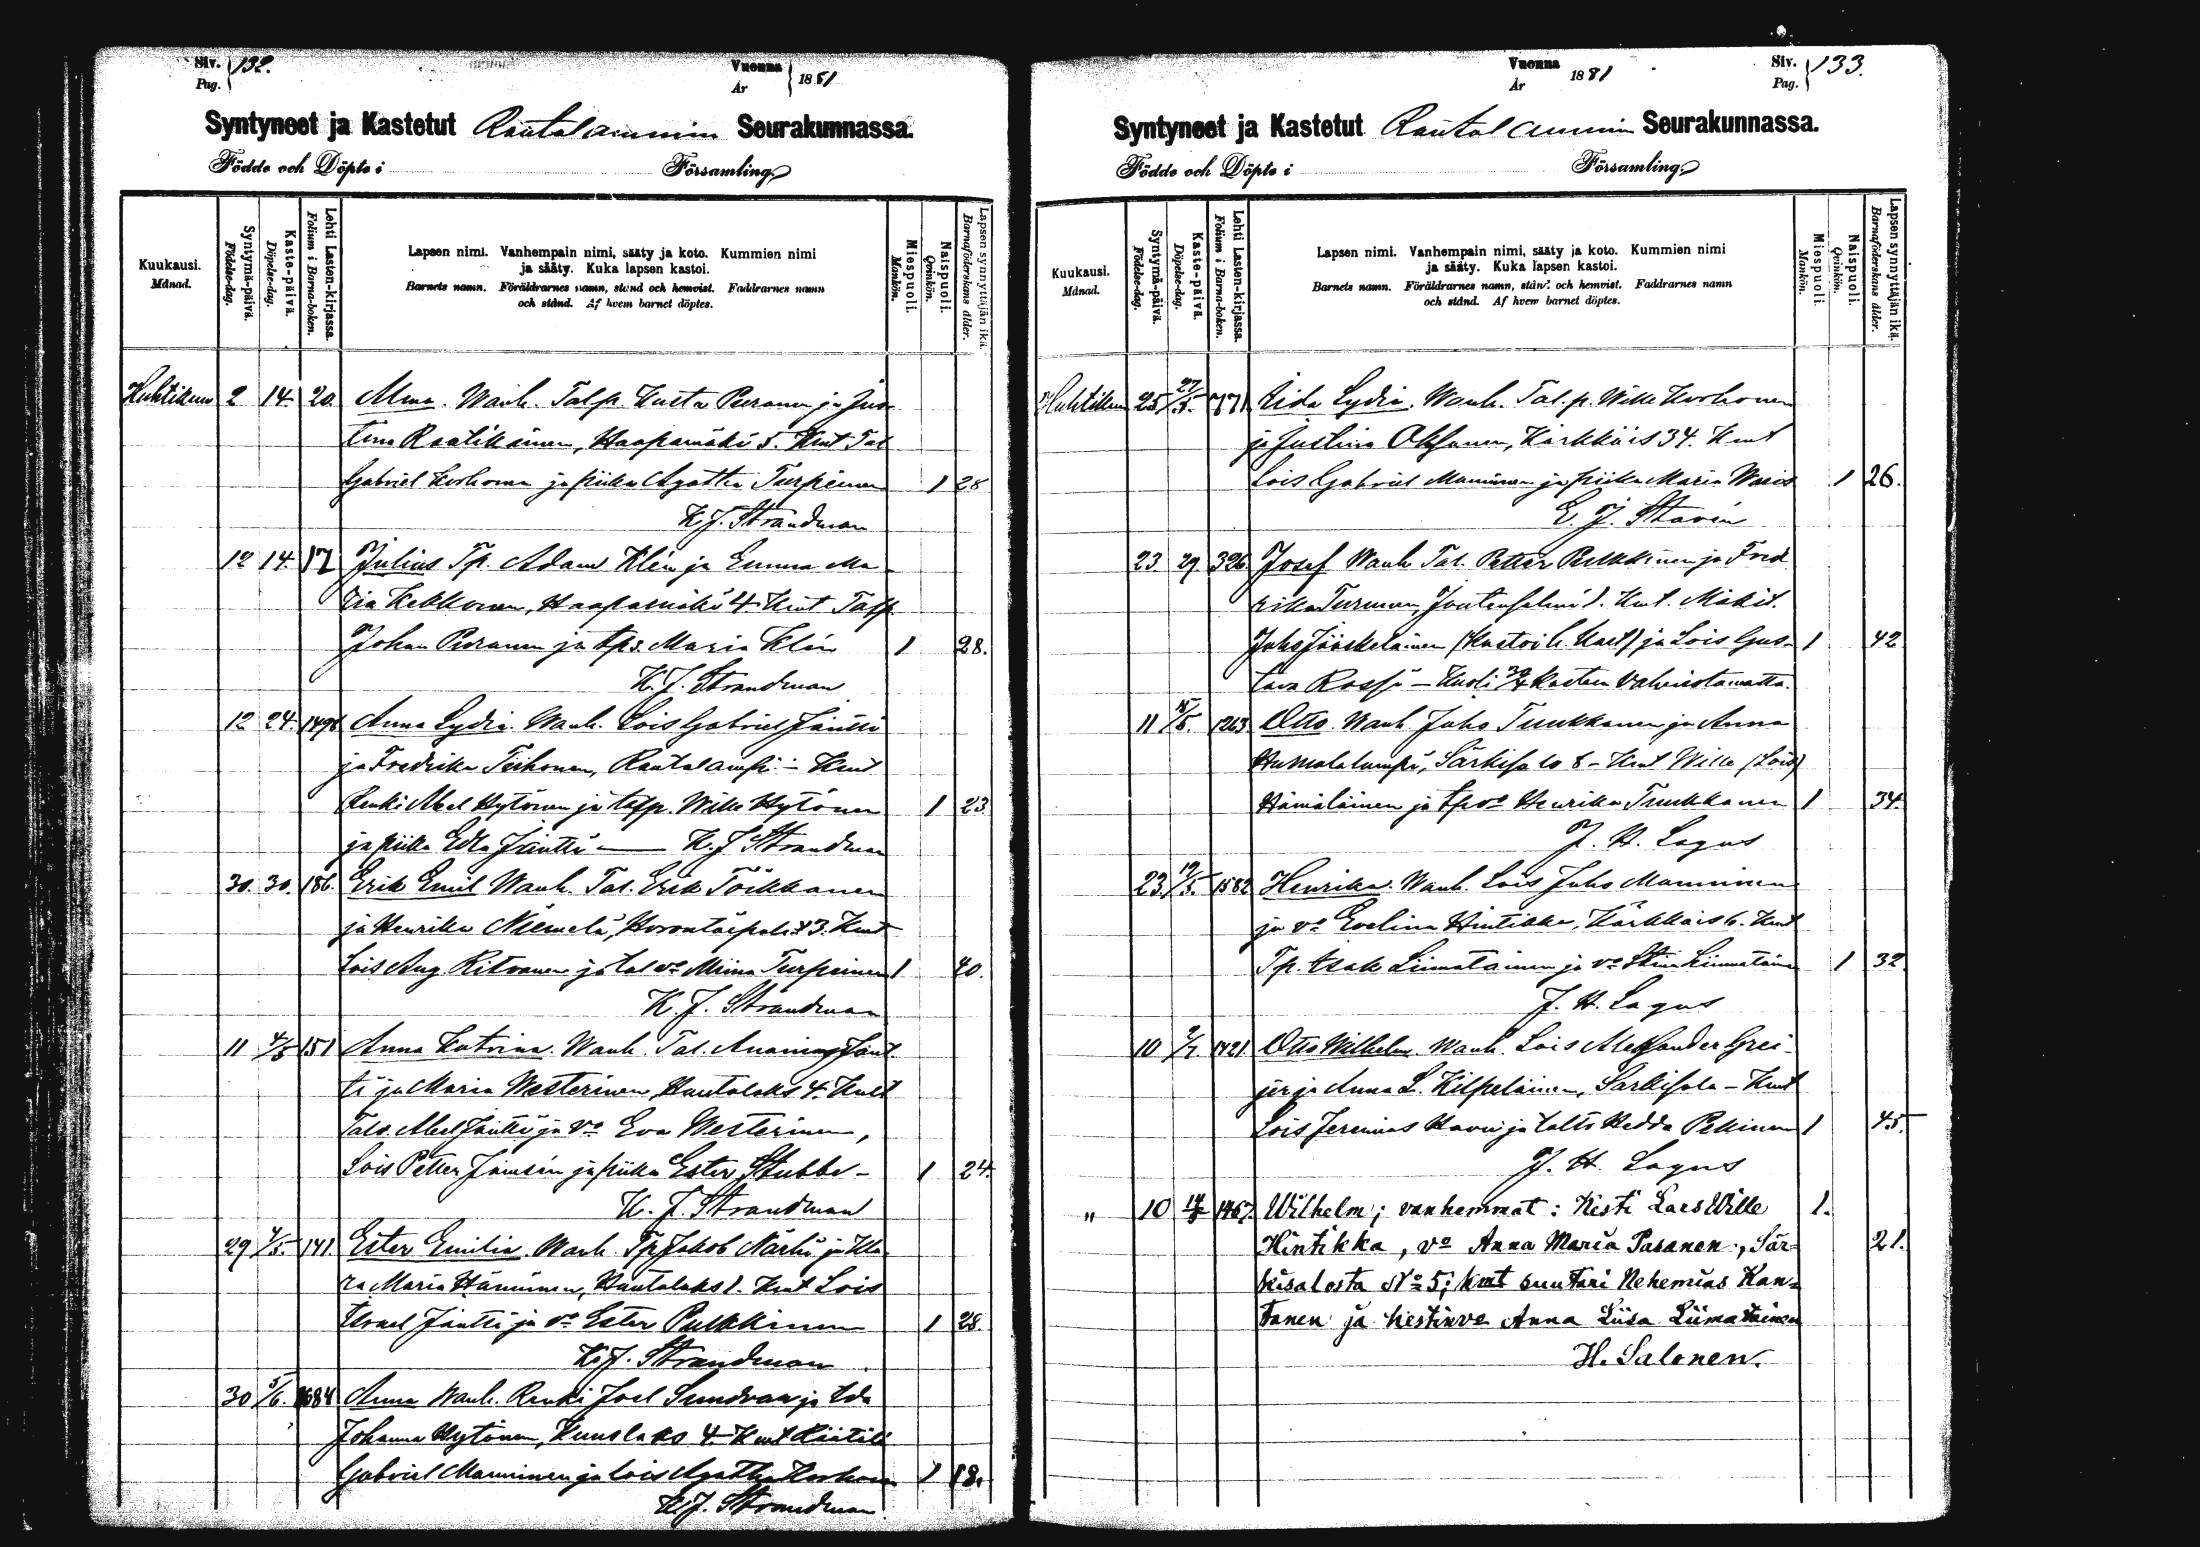 Siv. 132.
Pag.
Vuonna 1881
År
Syntyneet ja Kastetut Rautalammin Seurakunnassa.
Födde och Döpte i Församling
Kuukausi.
Månad.
Syntymä-päivä.
Födelse-dag.
Kaste-päivä.
Döpelse-dag.
Lehti Lasten-kirjassa.
Folium i Barna-boken.
Lapsen nimi. Vanhempain nimi, sääty ja koto. Kummien nimi
ja sääty. Kuka lapsen kastoi.
Barnets namn. Föräldrarnes namn, stånd och hemvist. Faddrarnes namn
och stånd. Af hvem barnet döptes.
Miespuoli.
Mankön.
Naispuoli.
Qvinkön.
Lapsen synnyttäjän ikä.
Barnaföderskans ålder.
Huhtikuu 2 14. 20. Manh. Talp. Kusta Puranen ja Jus-
tina Raatikainen, Haapamäki 5. Kmt Tal
Gabriel Korhonen ja piika Agatha Turpeinen 1 28
K. J. Strandman
12 14. 17 Julius Tp. Adam Klén ja Emma Ma-
ria Kekkonen, Haapamäki 4 Kmt Talp.
Johan Puranen ja tps. Maria Klén 1 28.
K. J. Strandman
12 24. 1498 Anna Lydia. Wanh. Lois Gabriel Jäntti
ja Fredrika Tiihonen, Rautalampi - Kmt
Renki Abel Hytönen ja talp. Wille Hytönen 1 23
ja piika Edla Jäntti — K. J Strandman
30. 30. 186. Erik Emil Wanh. Tal. Erik Töikkanen
ja Henrika Niemelä, 3. Kmt
Lois Aug. Ritvanen ja tal vo Miina Turpeinen 1 40.
K. J. Strandman
11 4/5 151 Anna Katrina. Wanh. Tal. Jänt-
ti ja Maria Westerinen, Hautolaks 4. Kmt
Tal. Abel Jäntti ja vo Eva Westerinen,
Lois Petter Jämsén ja piika Ester Stubbe - 1 24.
K. J. Strandman
29 4/5. 141. Ester Emilia. Wanh. Tp Jakob Närhi ja Kla-
ra Maria Hänninen, Hautolaks 1. Kmt Lois
Israel Jäntti ja vo Ester Pulkkinen 1 28.
K. J. Strandman
30 5/6. 1684 Anna Wanh. Renki Joel Sundvan ja Ida
Johanna Hytönen, Kuuslaks 4. Kmt Räätäli
Gabriel Manninen ja lois Agatha Korhonen 1 18.
K. J. Strandman
Vuonna 1881
År
Siv. 133.
Pag.
Syntyneet ja Kastetut Rautalammin Seurakunnassa.
Födde och Döpte i Församling
Kuukausi.
Månad.
Syntymä-päivä.
Födelse-dag.
Kaste-päivä.
Döpelse-dag.
Lehti Lasten-kirjassa.
Folium i Barna-boken.
Lapsen nimi. Vanhempain nimi, sääty ja koto. Kummien nimi
ja sääty. Kuka lapsen kastoi.
Barnets namn. Föräldrarnes namn, stånd och hemvist. Faddrarnes namn
och stånd. Af hvem barnet döptes.
Miespuoli.
Mankön.
Naispuoli.
Qvinkön.
Lapsen synnyttäjän ikä.
Barnaföderskans ålder.
Huhtikuu 25 771 Iida Lydia. Wanh. Tal. p. Wille Korhonen
ja Justina Oksanen, Kärkkäis 34. Kmt
Lois Gabriel Manninen ja piika Maria Waris 1 26.
E. J. Stavén
23. 29. 326. Josef Wanh. Tal. Petter Pulkkinen ja Fred-
rika Turunen, Joutensalmi 1. Kmt. Mäkit.
Juho Jääskeläinen (Kastoi h. kast) ja Lois Gus- 1 42
tava Rossi - Kuoli 30/4 kasteen vahvistamatta.
11 15/5. 1263. Otto. Wanh. Juho Tuukkanen ja Anna
Humalalampi, Särkisalo 8 - Kmt Wille (Lois)
Hämäläinen ja tp vo Henrika Tuukkanen 1 34
J. H. Lagus
23. 19/5. 1582 Henrika. Wanh. Lois Juho Manninen
ja vo Evelina Hintikka, Kärkkäis 6. Kmt
Tp. Isak Liimatainen ja vo Stina Liimatainen 1 32
J. H. Lagus
10 1421 Otto Wilhelm. Wanh. Lois Aleksander Grei-
jer ja Anna L. Kilpeläinen, Särkisalo - Kmt
Lois Jeremias Havu ja talts Hedda Pekinen 1 45.
J. H. Lagus
" 10 1467. Wilhelm; vanhemmat: Kesti Lars Wille 1.
Hintikka, vo Anna Maria Pasanen, Sär- 21.
kisalosta No 5; kmt suutari Nehemias Kan-
tanen ja kestinvo Anna Liisa Liimatainen
H. Salonen.